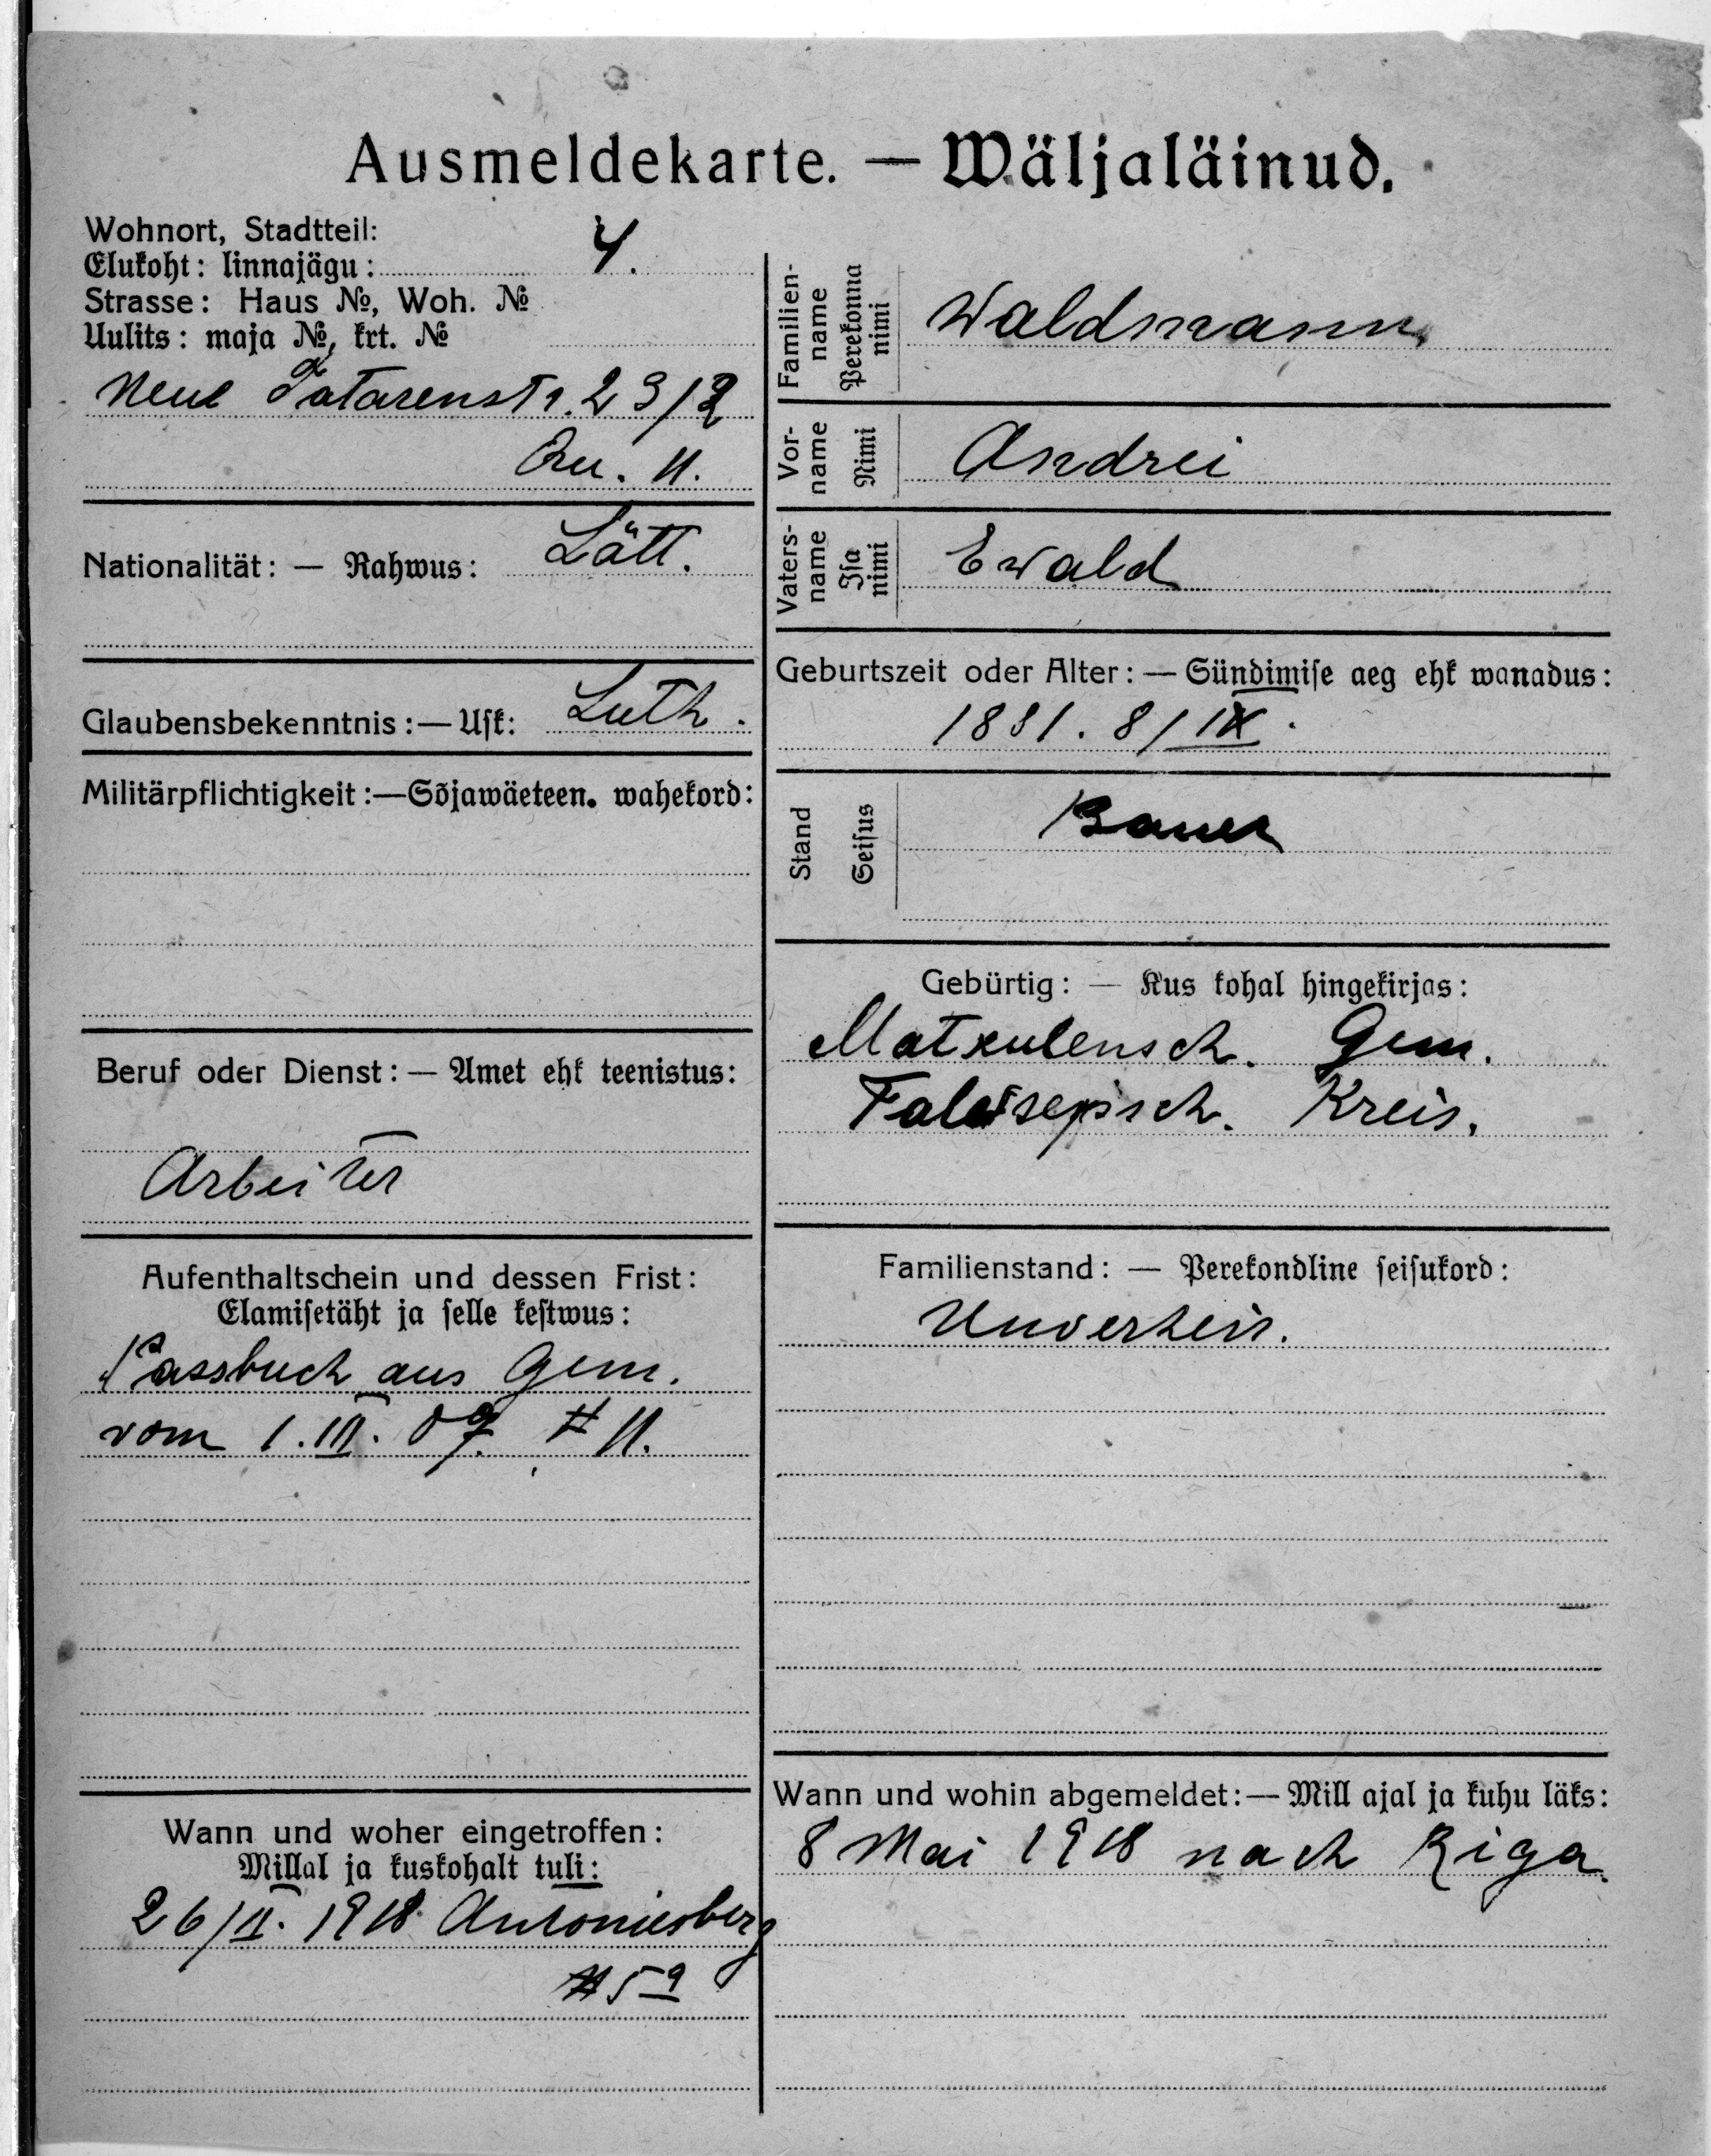 Ausmeldekarte. — Wäljaläinud.
Wohnort, Stadtteil:
Elukoht: linnajägu: 4.
Strasse: Haus №, Woh. №
Uulits: maja №, krt. №
Neue Tatarenstr. 23/2
Qu. 11.
Nationalität: — Rahwus: Lätt.
Glaubensbekenntnis: — Usk: Luth.
Militärpflichtigkeit: — Sõjawäeteen. wahekord:
Beruf oder Dienst: — Amet ehk teenistus:
Arbeiter
Aufenthaltschein und dessen Frist:
Elamisetäht ja selle kestwus:
Passbuch aus Gem.
vom 1.III. 07. # 11.
Wann und woher eingetroffen:
Millal ja kuskohalt tuli:
26/II. 1918. Antoniesberg
# 5a
Familienname
Perekonna nimi
Waldmann
Vorname
Nimi
Andrei
Vatersname
Isa nimi
Ewald
Geburtszeit oder Alter: — Sündimise aeg ehk wanadus:
1881. 8/IX.
Stand
Seisus
Bauer
Gebürtig: — Kus kohal hingekirjas:
Matkulensch. Gem.
Kreis.
Familienstand: — Perekondline seisukord:
Unverheir.
Wann und wohin abgemeldet: — Mill ajal ja kuhu läks:
8 Mai 1918 nach Riga.